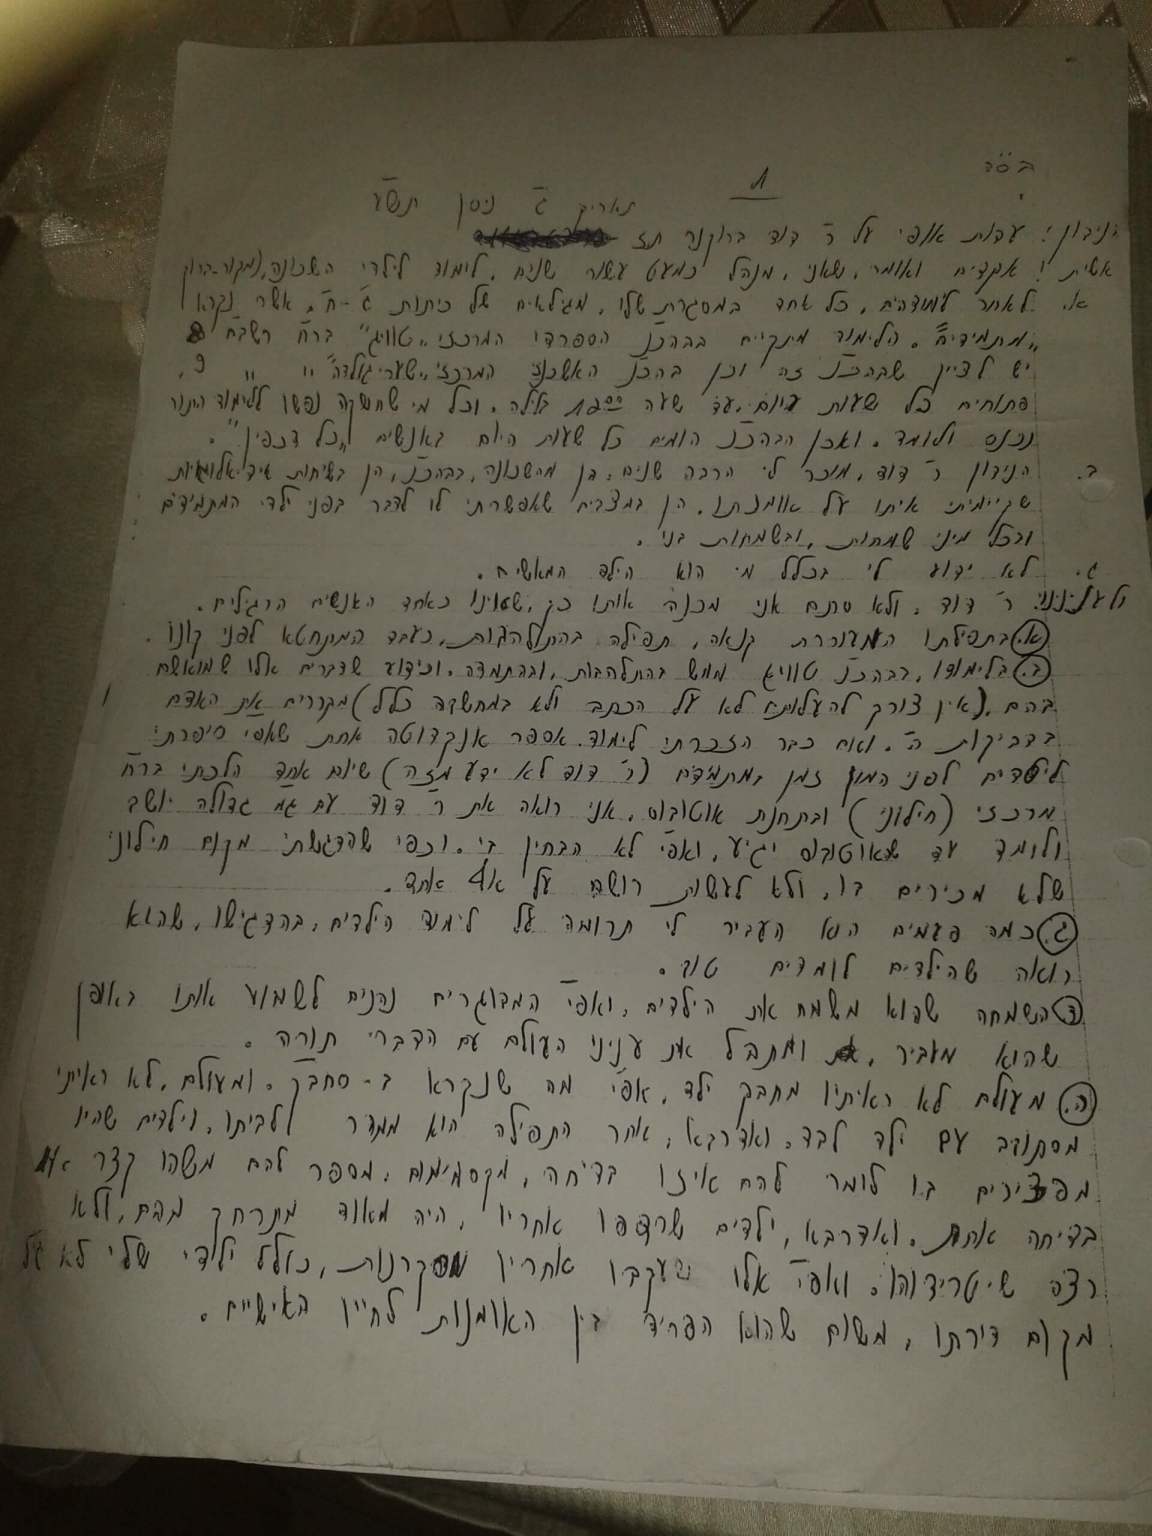 בס"ד
1
תאריך ג' ניסן תש"ע
הנידון: עדות אופי על ר' דוד ברוקנר תז
ראשית! אקדים ואומר, שאני, מנהל כמעט עשור שנים, לימוד לילדי השכונה,
א. לאחר לימודיהם, כל אחד במסגרת שלו, מגילאים של כיתות ג'-ח'. אשר נקרא
"מתמידים". הלימוד מתקיים בביהכ"נ הספרדי המרכזי "טוויג" ברח' רשב"ם 8
יש לציין שבהכ"נ זה וכן בהכ"נ האשכנזי המרכזי "שערי גולדה" " " 9,
פתוחים כל שעות היום, עד שעה בלילה. וכל מי שחשקה נפשו ללימוד התור
נכנס ולומד. ואכן הבהכ"נ הומים כל שעות היום באנשים "כל דכפין".
ב. הנידון ר' דוד, מוכר לי הרבה שנים, הן מהשכונה, בבהכ"נ, הן בשיחות אידיאלוגיות
שקיימתי איתו על אומנתו. הן במצבים שאפשרתי לו לדבר בפני ילדי המתמידים
ובכל מיני שמחות, ובשמחות בני.
ג. לא ידוע לי בכלל מי הוא הילד המאשים.
ולעניננו: ר' דוד, ולא סתם אני מכנה אותו כך, שאינו כאחד האנשים הרגילים.
א. בתפילתו המעוררת קנאה, תפילה בהתלהבות, כעבד המתחטא לפני קונו.
ב. בלימודו, בבהכ"נ טוויג ממש בהתלהבות, ובהתמדה. וכידוע שדברים אלו שמואשם
בהם, (אין צורך להעלותם לא על הכתב ולא במחשבה כלל) מקררים את האדם
בדביקות ה'. ואם כבר הזכרתי לימוד. אספר אנקדוטה אחת שאפי' סיפרתי
לילדים לפני המון זמן במתמידים (ר' דוד לא ידע מזה) שיום אחד הלכתי ברח'
מרכזי (חילוני) ובתחנת אוטובוס, אני רואה את ר' דוד עם גמ' גדולה יושב
ולומד עד שאוטובוס יגיע, ואפי' לא הבחין בי. וכפי שהדגשתי מקום חילוני
שלא מכירים בו, ולא לעשות רושם על אף אחד.
ג. כמה פעמים הוא העביר לי תרומה על לימוד הילדים, בהדגישו, שהוא
רואה שהילדים לומדים טוב.
ד. השמחה שהוא משמח את הילדים, ואפי' המבוגרים נהנים לשמוע אותו באופן
שהוא מעביר, ומתבל את עניני העולם עם הדברי תורה.
ה. מעולם לא ראיתיו מחבק ילד, אפי' מה שנקרא ב- סחבק. ומעולם, לא ראיתי
מסתובב עם ילד לבד. ואדרבא, אחר התפילה הוא ממהר לביתו, וילדים שהיו
מפצירים בו לומר להם איזו בדיחה, מקסימום, מספר להם משהו קצר או
בדיחה אחת. ואדרבא, ילדים שרדפו אחריו, היה מאוד מתרחק מהם, ולא
רצה שיטרידוהו. ואפי' אלו שעקבו אחריו מסקרנות, כולל ילדי שלי לא
מקום דירתו, משום שהוא הפריד בין האומנות לחייו האישיים.